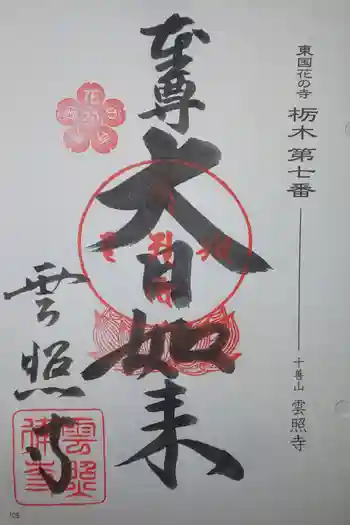 東国花の寺 栃木 第七番
十善山 雲照寺
本尊
大日如来
雲照寺
105